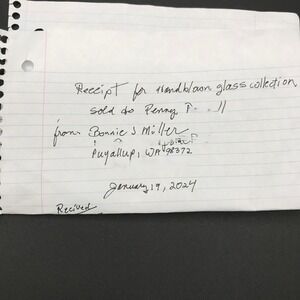 Receipt for Handblown glass collection
sold to Penny P
from Bonnie J Miller
Puyallup, WA 98372
January 19, 2024
Recived